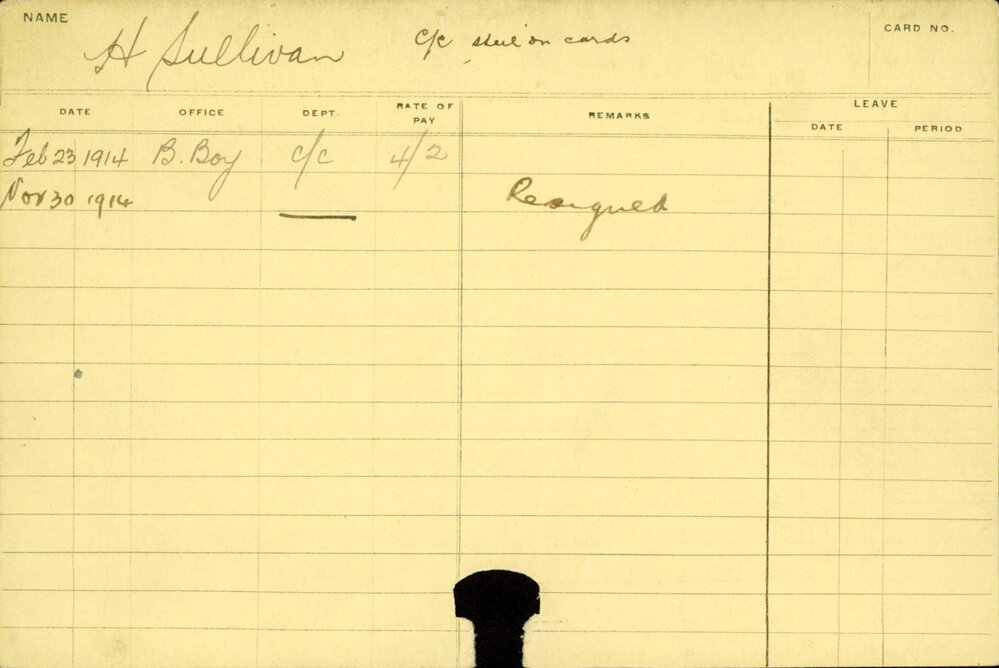 NAME
H Sullivan
C/C still on cards
CARD NO.
DATE OFFICE DEPT. RATE OF PAY REMARKS LEAVE
DATE PERIOD
Feb 23 1914 B. Boy C/C 4/2
Nov 30 1914 Resigned